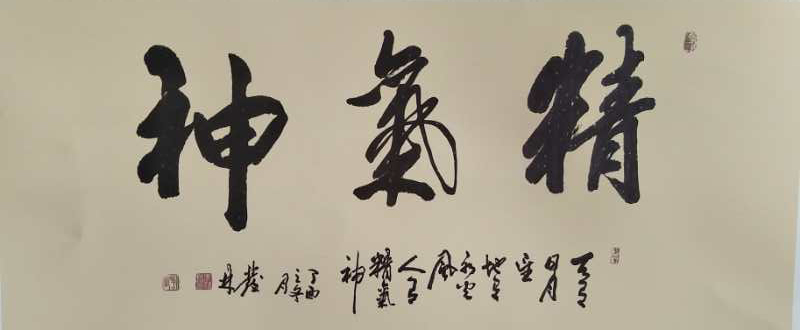 精氣神
天有
日月
星
地有
水火
風
人有
精氣
神
丁酉